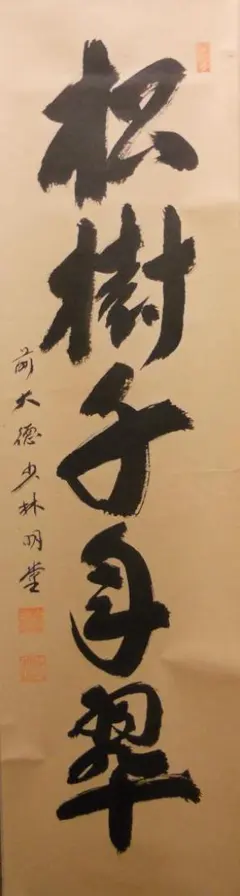 松樹千年翠
前大徳少林明堂